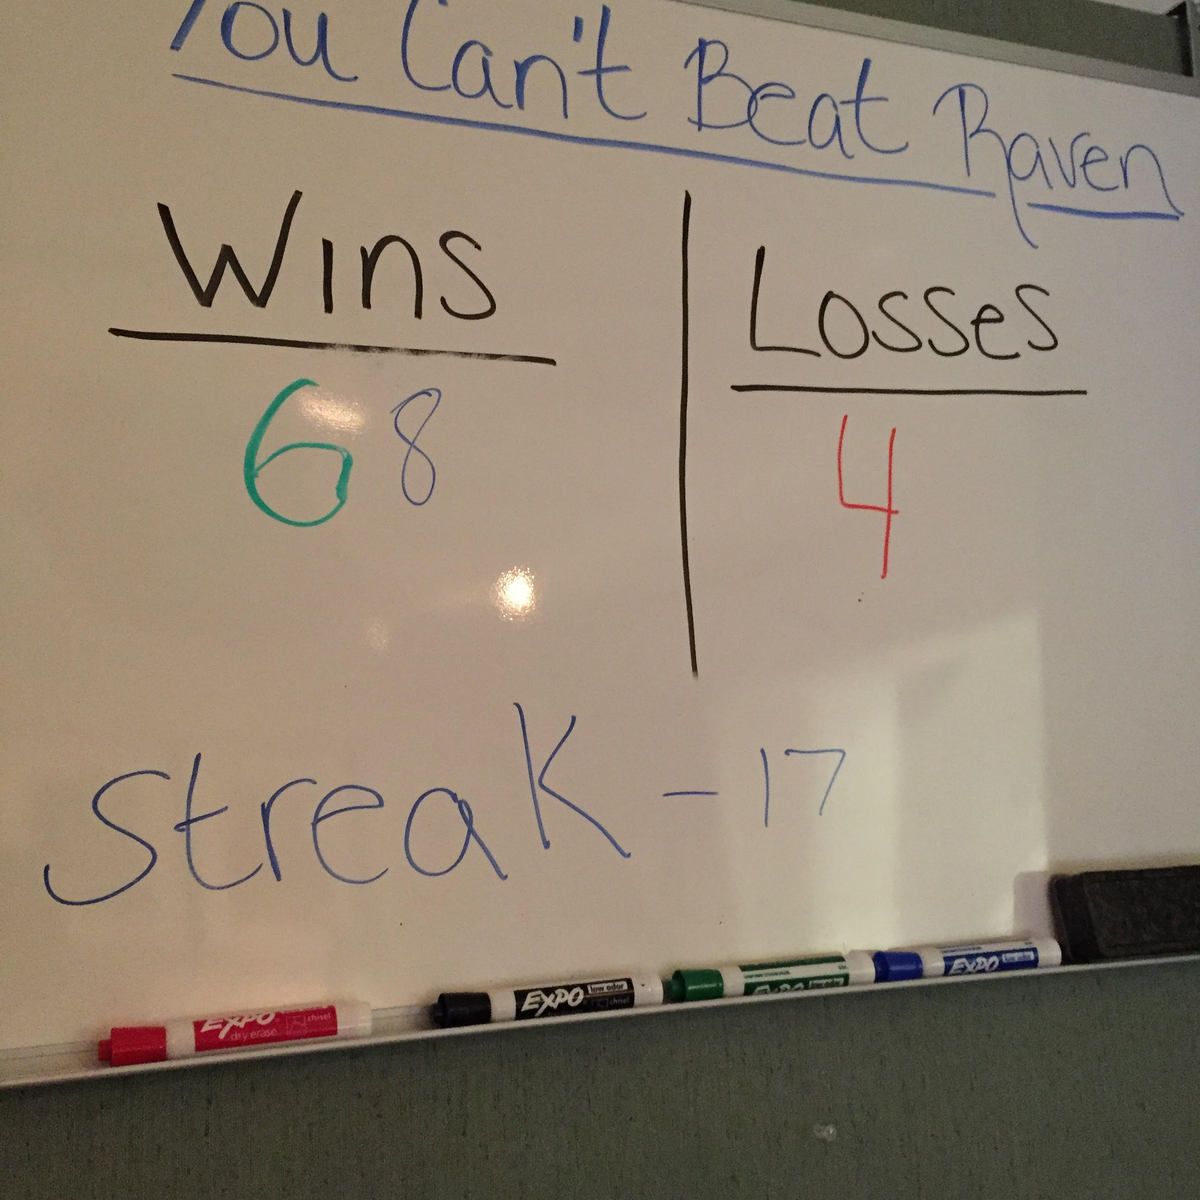 You Can't Beat Raven
Wins
Losses
68
4
Streak - 17
EXPO
dry erase
chisel
EXPO
low odor
chisel
EXPO
EXPO
low odor